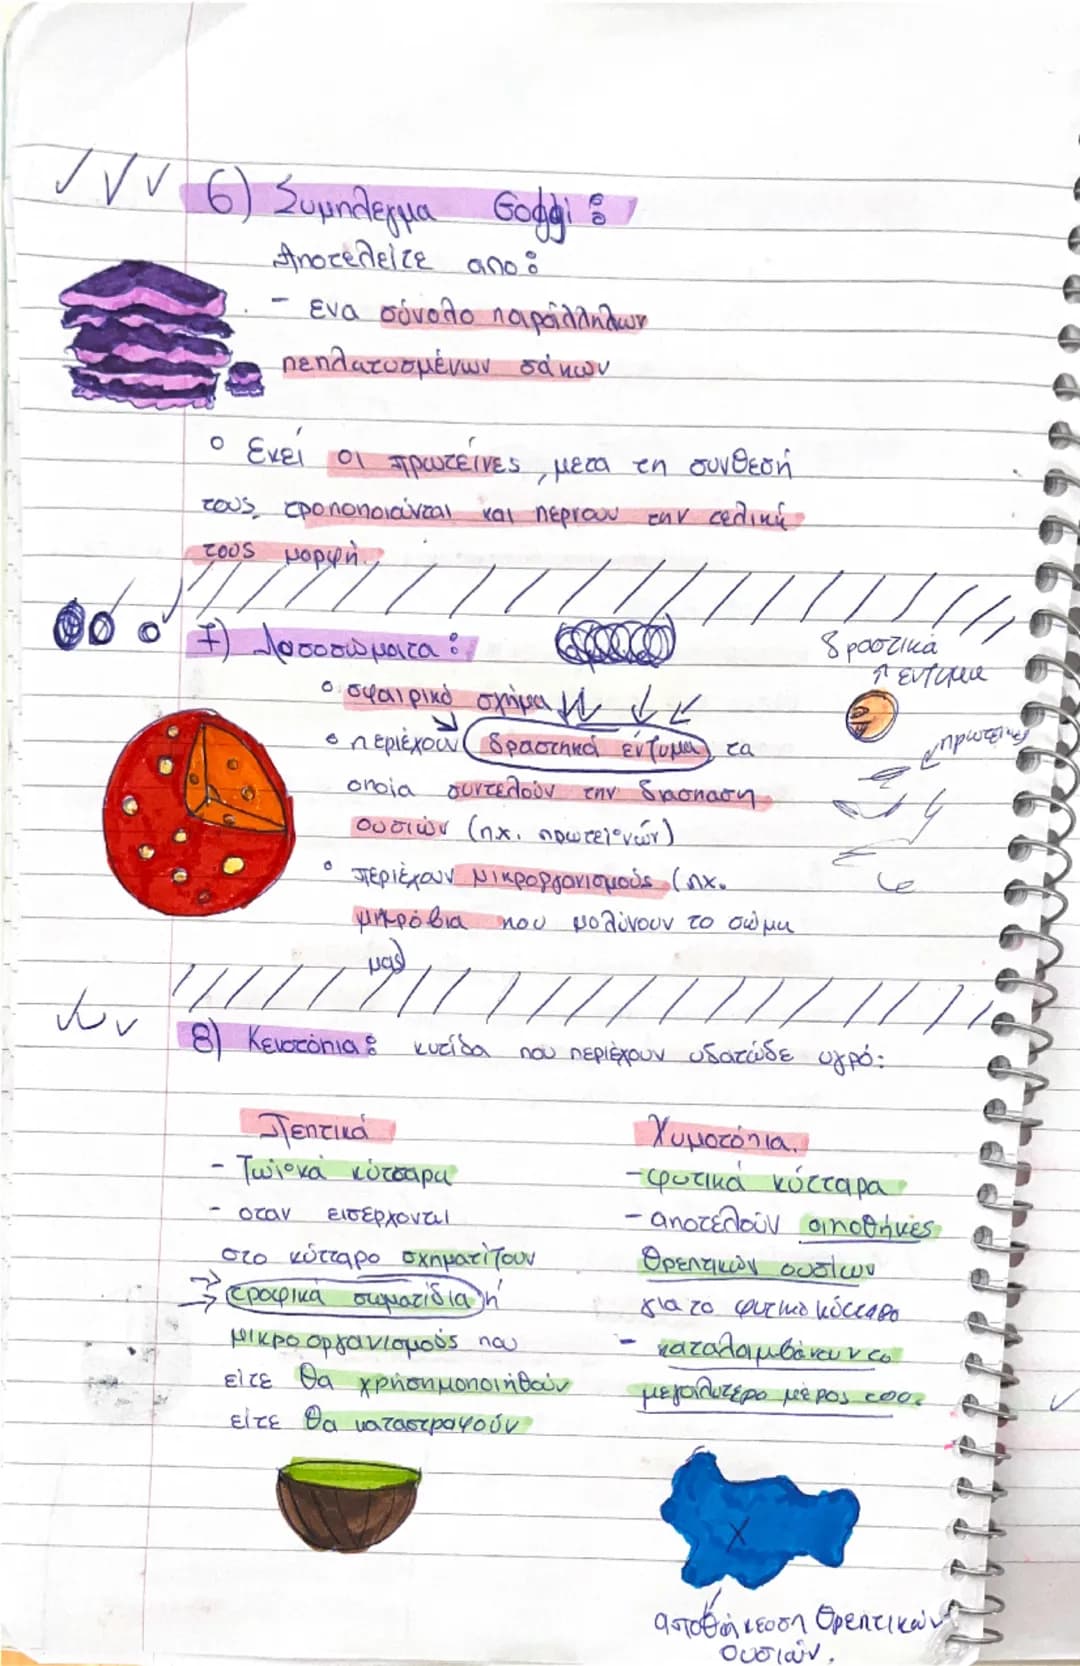 6) Συμπλεγμα Golgi :
Αποτελείτε απο :
- ενα σύνολο παράλληλων
πεπλατυσμένων σάκων
Εκεί οι πρωτείνες, μετα τη συνθεσή
τους, τροποποιούνται και περνουν την τελική
τους μορφή.
7) Λυσοσώματα :
σφαιρικό σχήμα
περιέχουν δραστηκά ένζυμα, τα
οποία συντελούν την διασπαση
ουσιών (πχ. πρωτεϊνών)
περιέχουν μικροργανισμούς (πχ.
μικρόβια που μολύνουν το σώμα
μας)
δραστικά
ενζυμα
πρωτεινες
8) Κενοτόπια : κυτίδα που περιέχουν υδατώδε υγρό:
Πεπτικά
- Ζωικά κύτταρα
- οταν εισερχονται
στο κύτταρο σχηματίζουν
τροφικά σωματίδια ή
μικροοργανισμούς που
είτε θα χρησημοποιηθούν
είτε θα καταστραφούν
Χυμοτόπια.
- φυτικά κύτταρα
- αποτελούν αποθήκες
θρεπτικών ουσίων
για το φυτικο κύτταρο
- καταλαμβάνουν το
μεγαλυτέρο μέρος του.
αποθήκευση θρεπτικών
ουσιών.